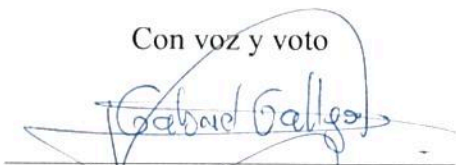 Con voz y voto
Gabriel Gallego